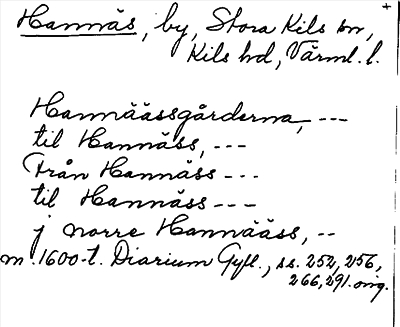 Hannäs, by, Stora Kils sn,
Kils hd, Värml. l.
Hannääsgårderna, ---
til Hannäss, ---
Från Hannäss ---
til Hannäss ---
j norre Hannääss, --
m. 1600-t. Diarium Gyll., ss. 252, 256,
266, 291. orig.